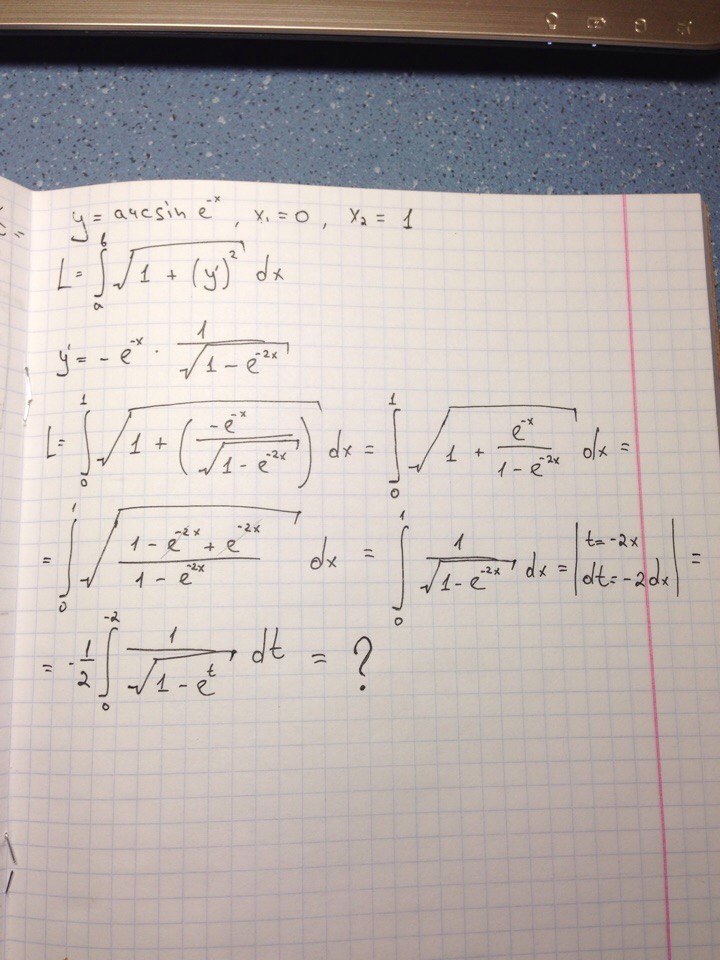 y = arcsin e^{-x}, x₁ = 0, x₂ = 1
L = ∫_a^b √(1 + (y')²) dx
y' = - e^{-x} · 1/√(1 - e^{-2x})
L = ∫_0^1 √(1 + (-e^{-x}/√(1 - e^{-2x}))) dx = ∫_0^1 √(1 + e^{-x}/(1 - e^{-2x})) dx =
= ∫_0^1 √((1 - e^{-2x} + e^{-2x})/(1 - e^{-2x})) dx = ∫_0^1 1/√(1 - e^{-2x}) dx = |t = -2x dt = -2dx| =
= -1/2 ∫_0^{-2} 1/√(1 - e^t) dt = ?